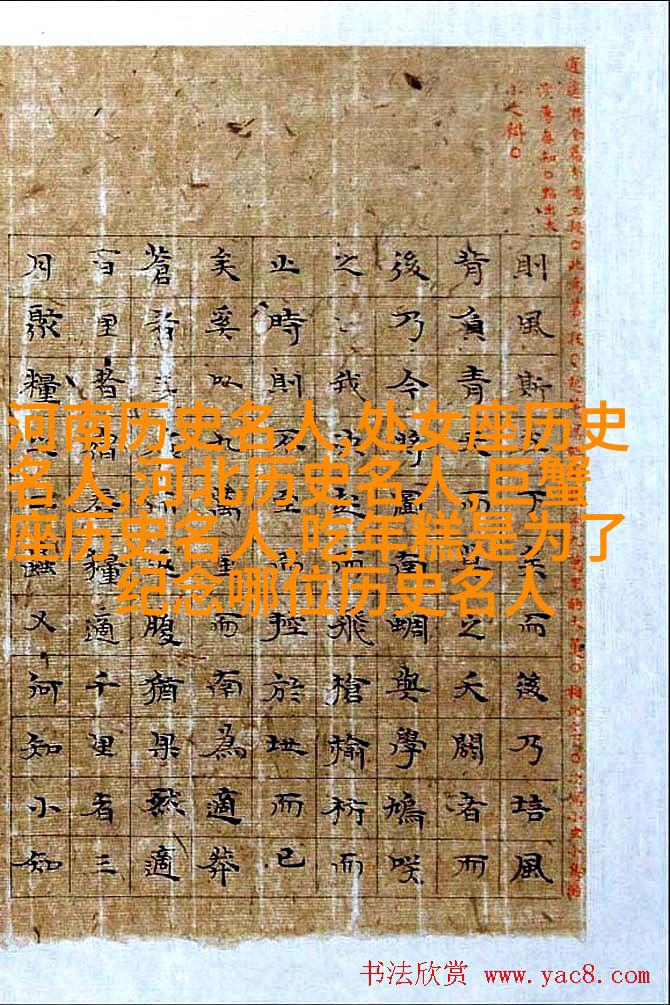 則風斯在下矣而後乃培風
背負青天而莫之夭閼者而
後乃今將圖南蜩與學鳩咲
之曰我決起而飛槍榆枋而
止時則不至而控於地而已
矣奚以九萬里而南為適莽
蒼者三飡而反腹猶果然適
百里者宿舂糧適千里者三
月聚糧之二蟲又何知小知
小之辯
河南历史名人,处女座历史
名人,河北历史名人,巨蟹
座历史名人,吃年糕是为了
纪念哪位历史名人
书法欣赏 www.yac8.com